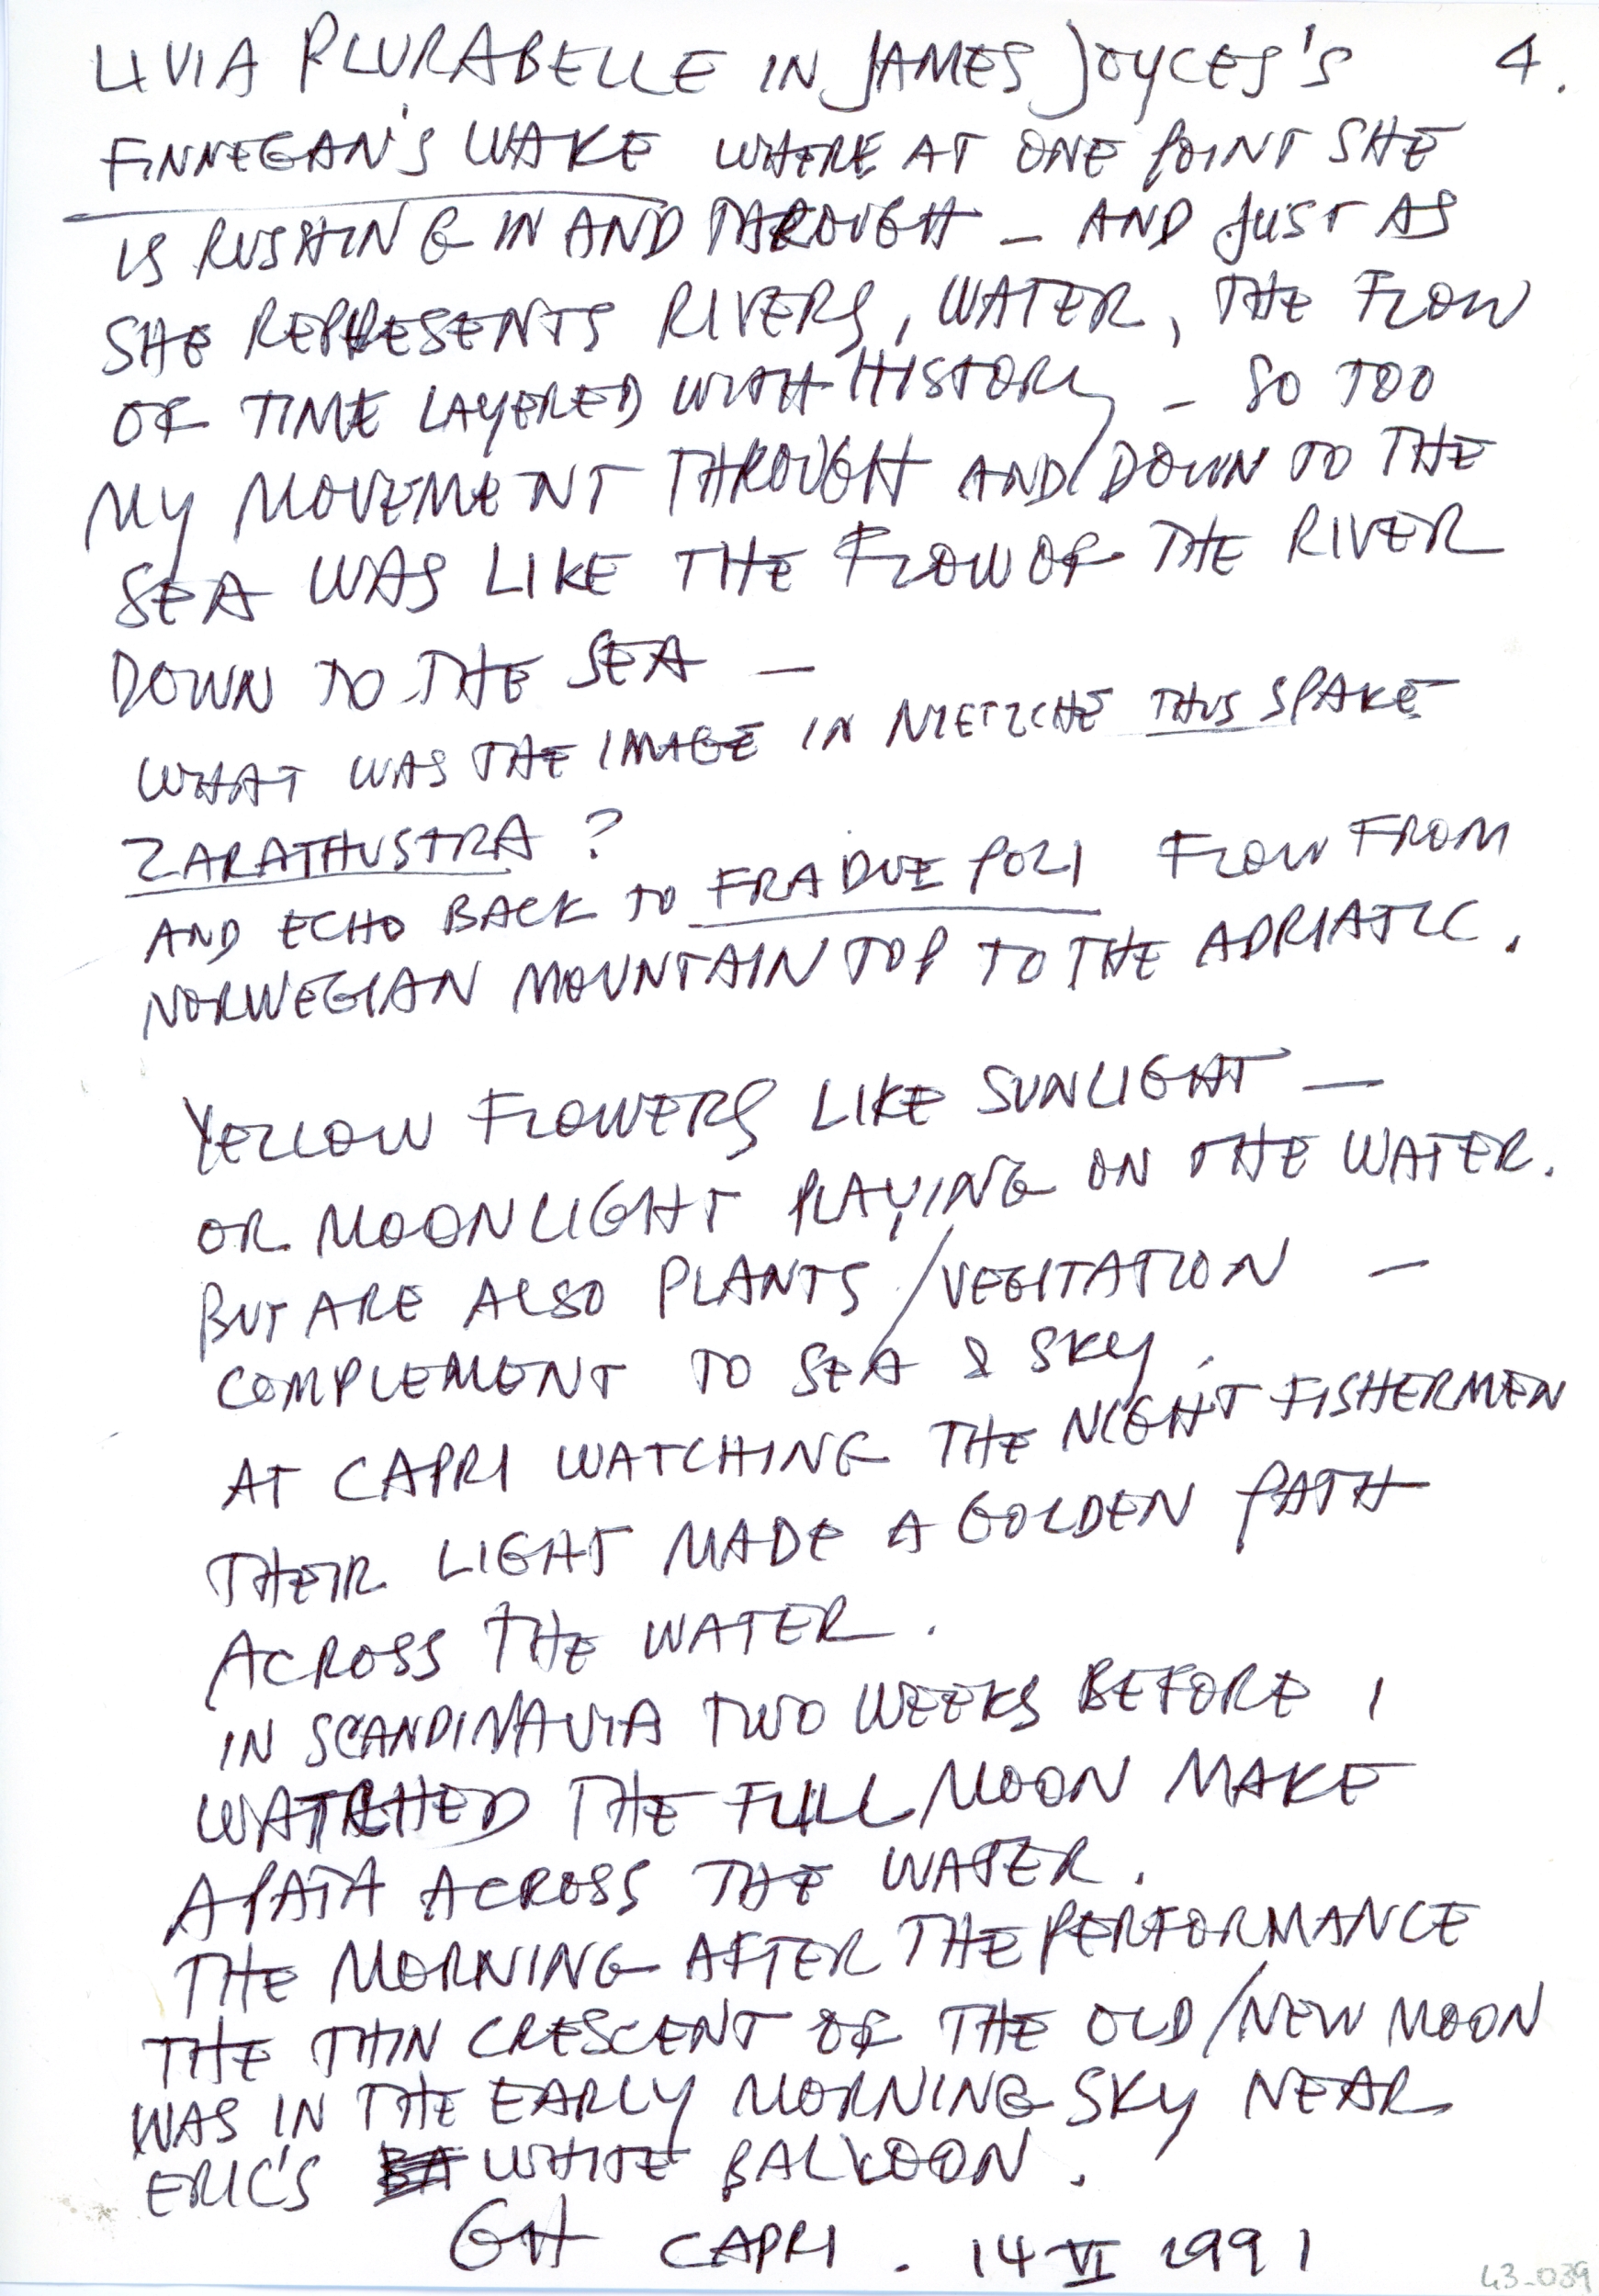 LIVIA PLURABELLE IN JAMES JOYCES'S 4.
FINNEGAN'S WAKE WHERE AT ONE POINT SHE
IS RUSHING IN AND THROUGH – AND JUST AS
SHE REPRESENTS RIVERS, WATER, THE FLOW
OF TIME LAYERED WITH HISTORY – SO TOO
MY MOVEMENT THROUGH AND/DOWN TO THE
SEA WAS LIKE THE FLOW OF THE RIVER
DOWN TO THE SEA –
WHAT WAS THE IMAGE IN NIETZCHE THUS SPAKE
ZARATHUSTRA ?
AND ECHO BACK TO FRA DUE POZI FLOW FROM
NORWEGIAN MOUNTAIN TOP TO THE ADRIATIC.
YELLOW FLOWERS LIKE SUNLIGHT –
OR MOONLIGHT PLAYING ON THE WATER.
BUT ARE ALSO PLANTS/VEGITATION –
COMPLEMENT TO SEA & SKY.
AT CAPRI WATCHING THE NIGHT FISHERMEN
THEIR LIGHT MADE A GOLDEN PATH
ACROSS THE WATER.
IN SCANDINAVIA TWO WEEKS BEFORE I
WATCHED THE FULL MOON MAKE
A PATH ACROSS THE WATER.
THE MORNING AFTER THE PERFORMANCE
THE THIN CRESCENT OF THE OLD/NEW MOON
WAS IN THE EARLY MORNING SKY NEAR
ERIC'S WHITE BALLOON.
GH CAPRI. 14 VI 1991
43-039